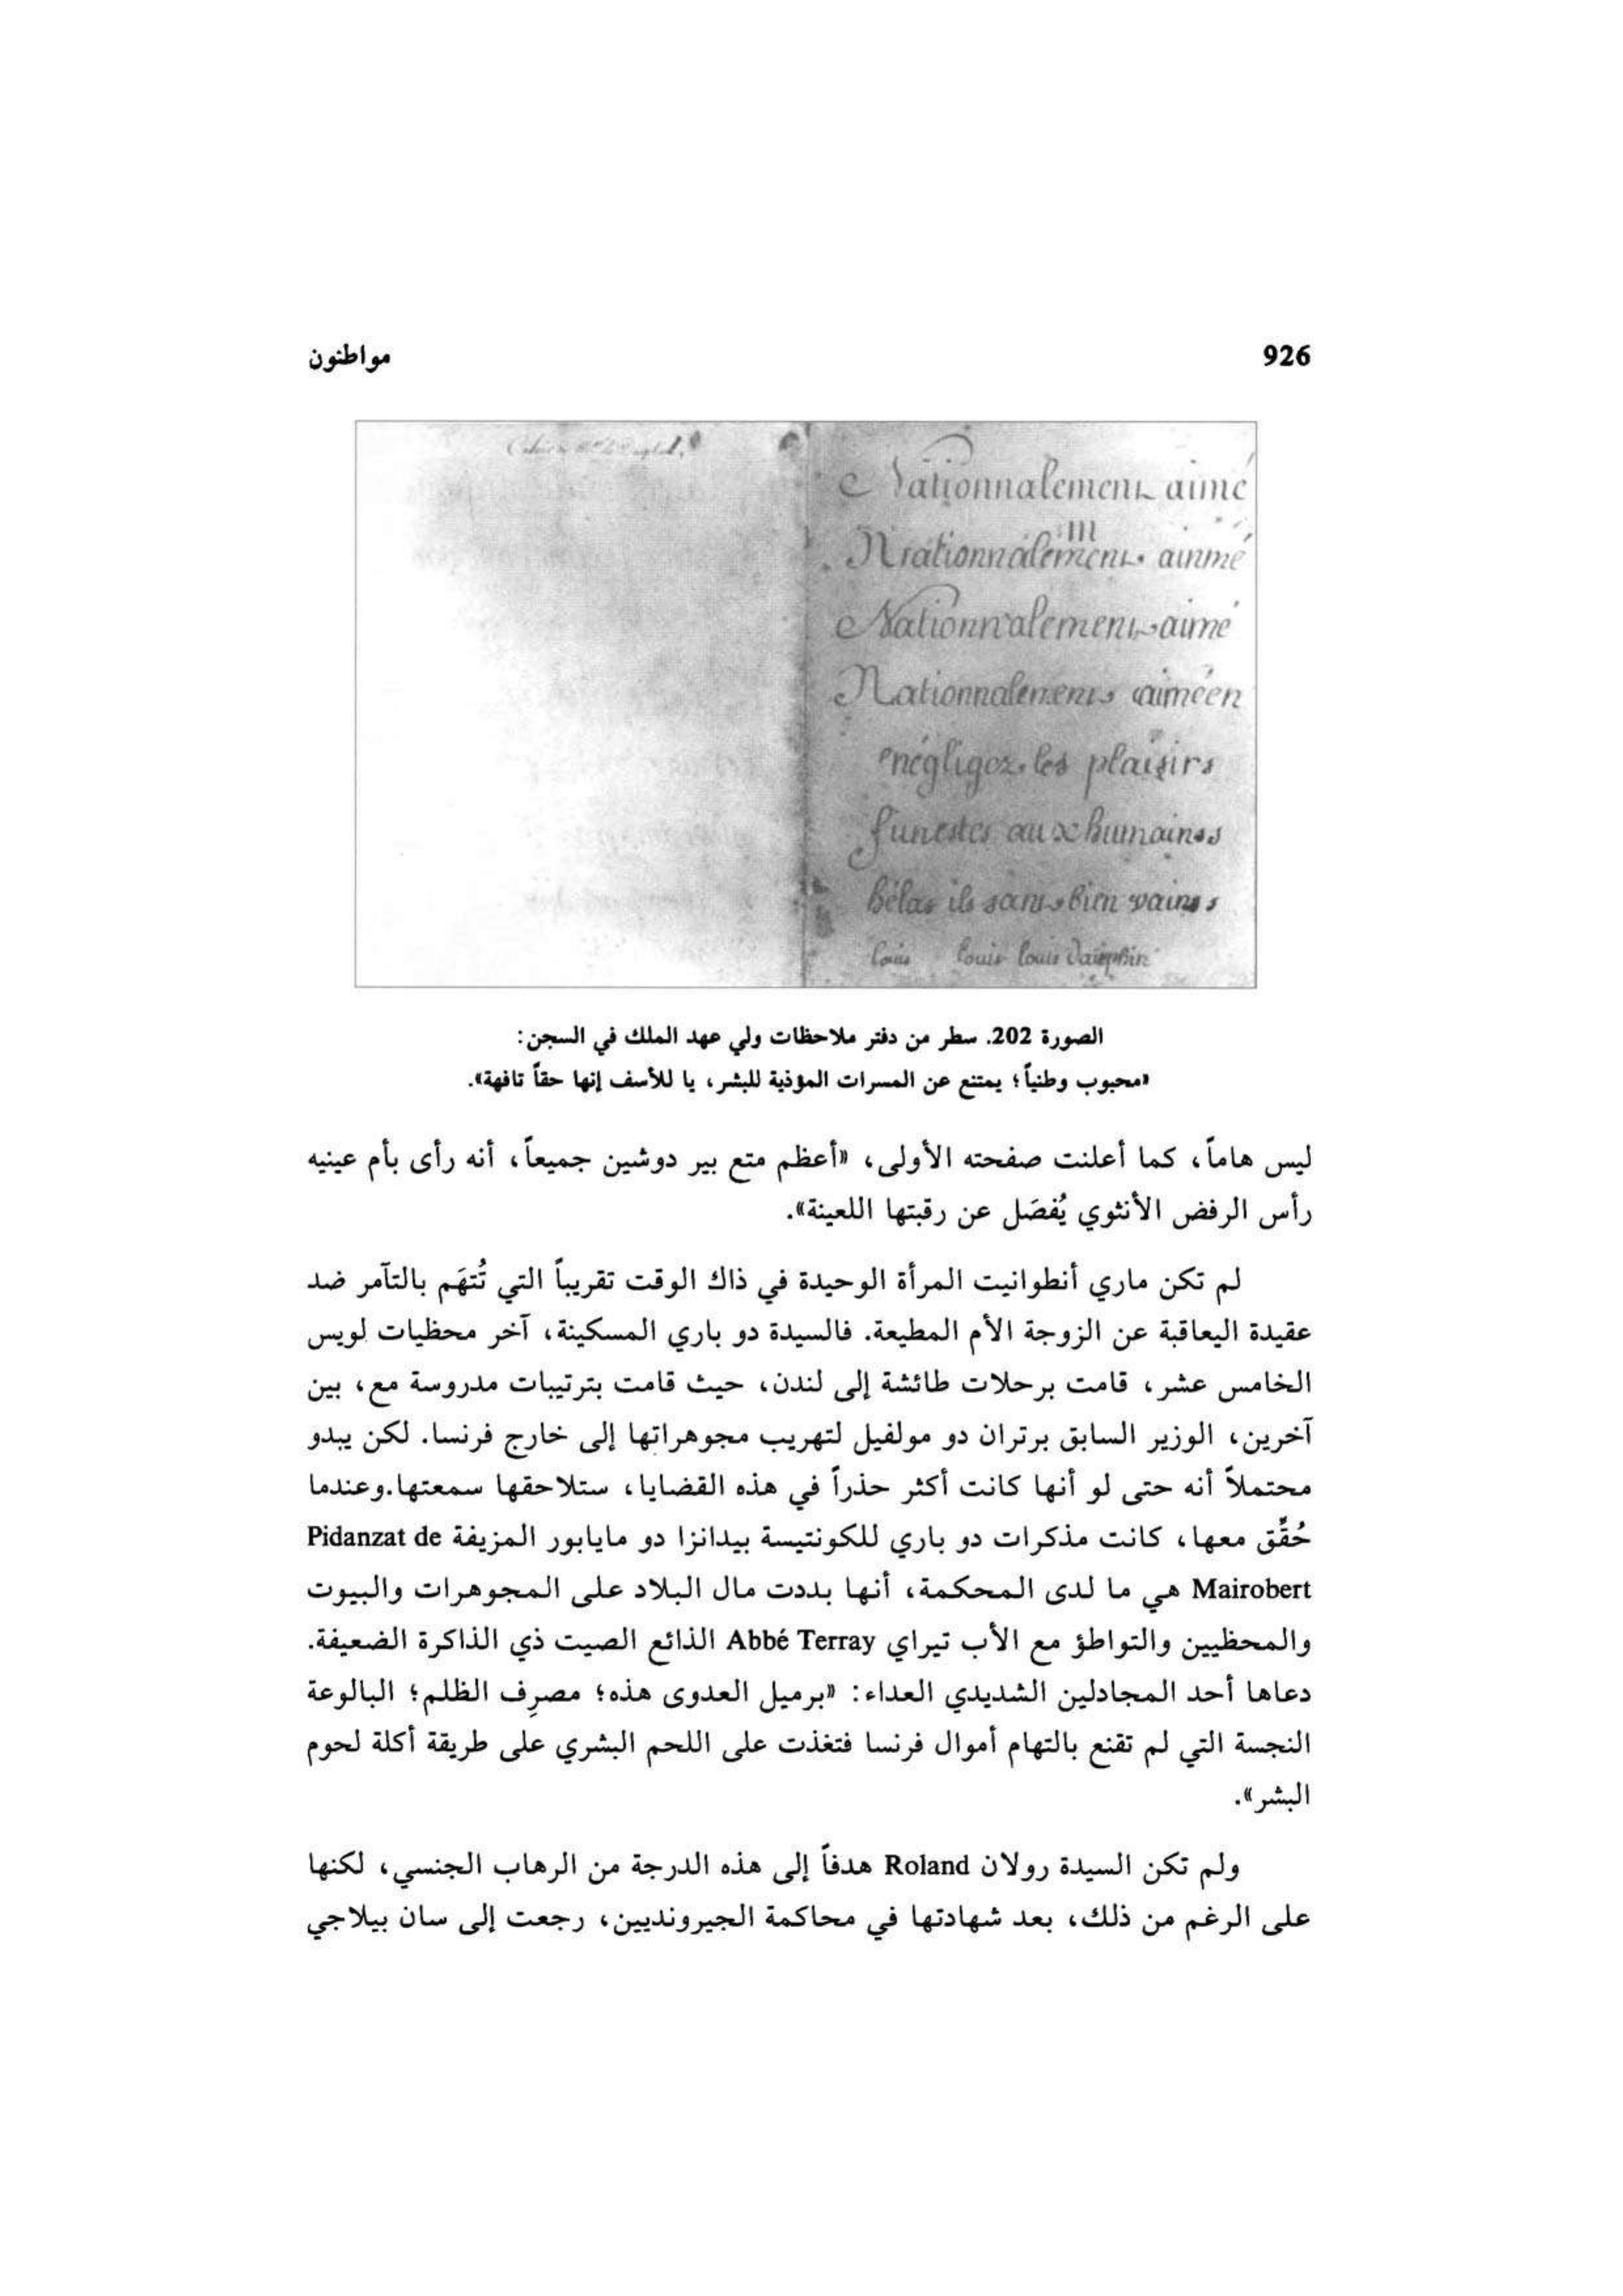 926
مواطنون
Nationnalement aimé
Nrationnalement ainmé
m
Nationnalement aimé
Nationnalement aiméen
négligez les plaisirs
funestes aux humains
hélas ils sont bien vains
louis louis louis Dauphin
الصورة 202. سطر من دفتر ملاحظات ولي عهد الملك في السجن:
«محبوب وطنياً؛ يمتنع عن المسرات المؤذية للبشر، يا للأسف إنها حقاً تافهة».
ليس هاماً، كما أعلنت صفحته الأولى، «أعظم متع بير دوشين جميعاً، أنه رأى بأم عينيه
رأس الرفض الأنثوي يُفصَل عن رقبتها اللعينة».
لم تكن ماري أنطوانيت المرأة الوحيدة في ذاك الوقت تقريباً التي تُتهَم بالتآمر ضد
عقيدة اليعاقبة عن الزوجة الأم المطيعة. فالسيدة دو باري المسكينة، آخر محظيات لويس
الخامس عشر، قامت برحلات طائشة إلى لندن، حيث قامت بترتيبات مدروسة مع، بين
آخرين، الوزير السابق برتران دو مولفيل لتهريب مجوهراتها إلى خارج فرنسا. لكن يبدو
محتملاً أنه حتى لو أنها كانت أكثر حذراً في هذه القضايا، ستلاحقها سمعتها.وعندما
حُقِّق معها، كانت مذكرات دو باري للكونتيسة بيدانزا دو مايابور المزيفة Pidanzat de
Mairobert هي ما لدى المحكمة، أنها بددت مال البلاد على المجوهرات والبيوت
والمحظيين والتواطؤ مع الأب تيراي Abbé Terray الذائع الصيت ذي الذاكرة الضعيفة.
دعاها أحد المجادلين الشديدي العداء: «برميل العدوى هذه؛ مصرِف الظلم؛ البالوعة
النجسة التي لم تقنع بالتهام أموال فرنسا فتغذت على اللحم البشري على طريقة أكلة لحوم
البشر».
ولم تكن السيدة رولان Roland هدفاً إلى هذه الدرجة من الرهاب الجنسي، لكنها
على الرغم من ذلك، بعد شهادتها في محاكمة الجيرونديين، رجعت إلى سان بيلاجي